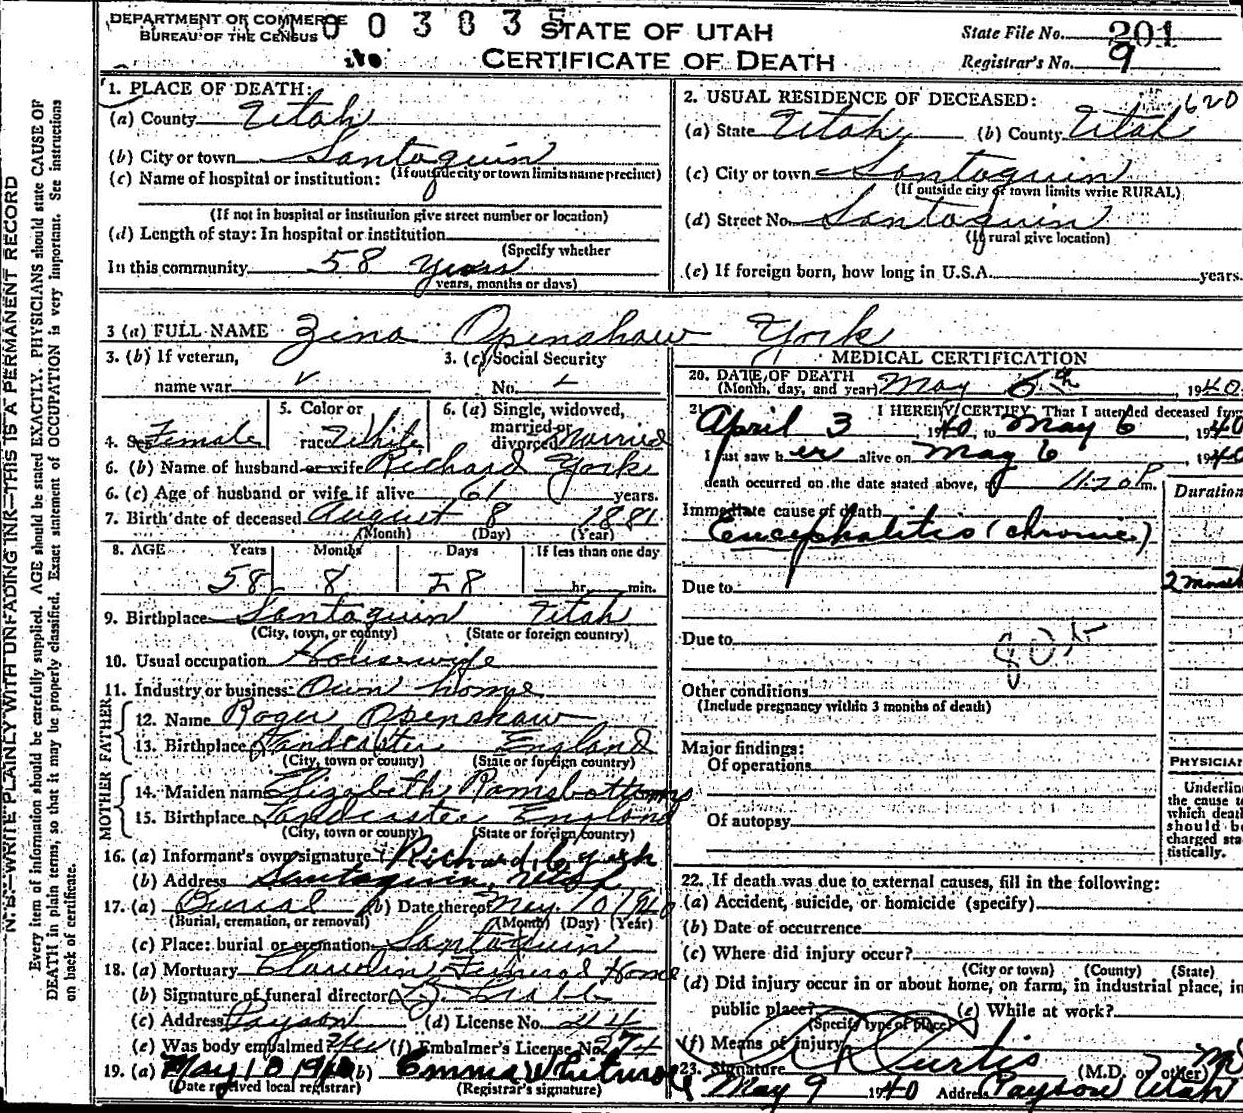 DEPARTMENT OF COMMERCE
BUREAU OF THE CENSUS
003835
STATE OF UTAH
CERTIFICATE OF DEATH
State File No. 201
Registrar's No. 9
N. B.—WRITE PLAINLY WITH UNFADING INK—THIS IS A PERMANENT RECORD
Every item of information should be carefully supplied. AGE should be stated EXACTLY. PHYSICIANS should state CAUSE OF
DEATH in plain terms, so that it may be properly classified. Exact statement of OCCUPATION is very important. See instructions
on back of certificate.
1. PLACE OF DEATH:
(a) County Utah
(b) City or town Santaquin
(If outside city or town limits name precinct)
(c) Name of hospital or institution:
(If not in hospital or institution give street number or location)
(d) Length of stay: In hospital or institution
(Specify whether
In this community 58 years
years, months or days)
2. USUAL RESIDENCE OF DECEASED: 620
(a) State Utah (b) County Utah
(c) City or town Santaquin
(If outside city or town limits write RURAL)
(d) Street No. Santaquin
(If rural give location)
(e) If foreign born, how long in U.S.A. years.
3 (a) FULL NAME Zina Openshaw York
3. (b) If veteran,
name war
3. (c) Social Security
No.
4. Sex Female
5. Color or
race White
6. (a) Single, widowed,
married or
divorced Married
6. (b) Name of husband or wife Richard York
6. (c) Age of husband or wife if alive 61 years.
7. Birth date of deceased August 8 1881
(Month) (Day) (Year)
8. AGE Years Months Days If less than one day
58 8 28 hr. min.
9. Birthplace Santaquin Utah
(City, town, or county) (State or foreign country)
10. Usual occupation Housewife
11. Industry or business Own home
FATHER
12. Name Roger Openshaw
13. Birthplace Landcaster England
(City, town or county) (State or foreign country)
MOTHER
14. Maiden name Elizabeth Ramsbottoms
15. Birthplace Landcaster England
(City, town or county) (State or foreign country)
16. (a) Informant's own signature Richard C York
(b) Address Santaquin, Utah
17. (a) Burial (b) Date thereof May 10 1940
(Burial, cremation, or removal) (Month) (Day) (Year)
(c) Place: burial or cremation Santaquin
18. (a) Mortuary Funeral Home
(b) Signature of funeral director
(c) Address Payson (d) License No. 44
(e) Was body embalmed? Yes (f) Embalmer's License No. 274
19. (a) May 10 1940 (b) Emma Whitmore
(Date received local registrar) (Registrar's signature)
MEDICAL CERTIFICATION
20. DATE OF DEATH
(Month, day, and year) May 6th, 1940
21. I HEREBY CERTIFY, That I attended deceased from
April 3 1940, to May 6, 1940
I last saw her alive on May 6, 1940
death occurred on the date stated above, at 11:20 P.m.
Duration
Immediate cause of death
Encephalitis (chronic)
Due to
2 months
Due to
80
Other conditions
(Include pregnancy within 3 months of death)
Major findings:
Of operations
Of autopsy
PHYSICIAN
Underline
the cause to
which death
should be
charged sta-
tistically.
22. If death was due to external causes, fill in the following:
(a) Accident, suicide, or homicide (specify)
(b) Date of occurrence
(c) Where did injury occur?
(City or town) (County) (State)
(d) Did injury occur in or about home, on farm, in industrial place, in
public place?
(Specify type of place) (e) While at work?
(f) Means of injury
23. Signature Curtis (M.D. or other) MD
May 9 1940 Address Payson Utah